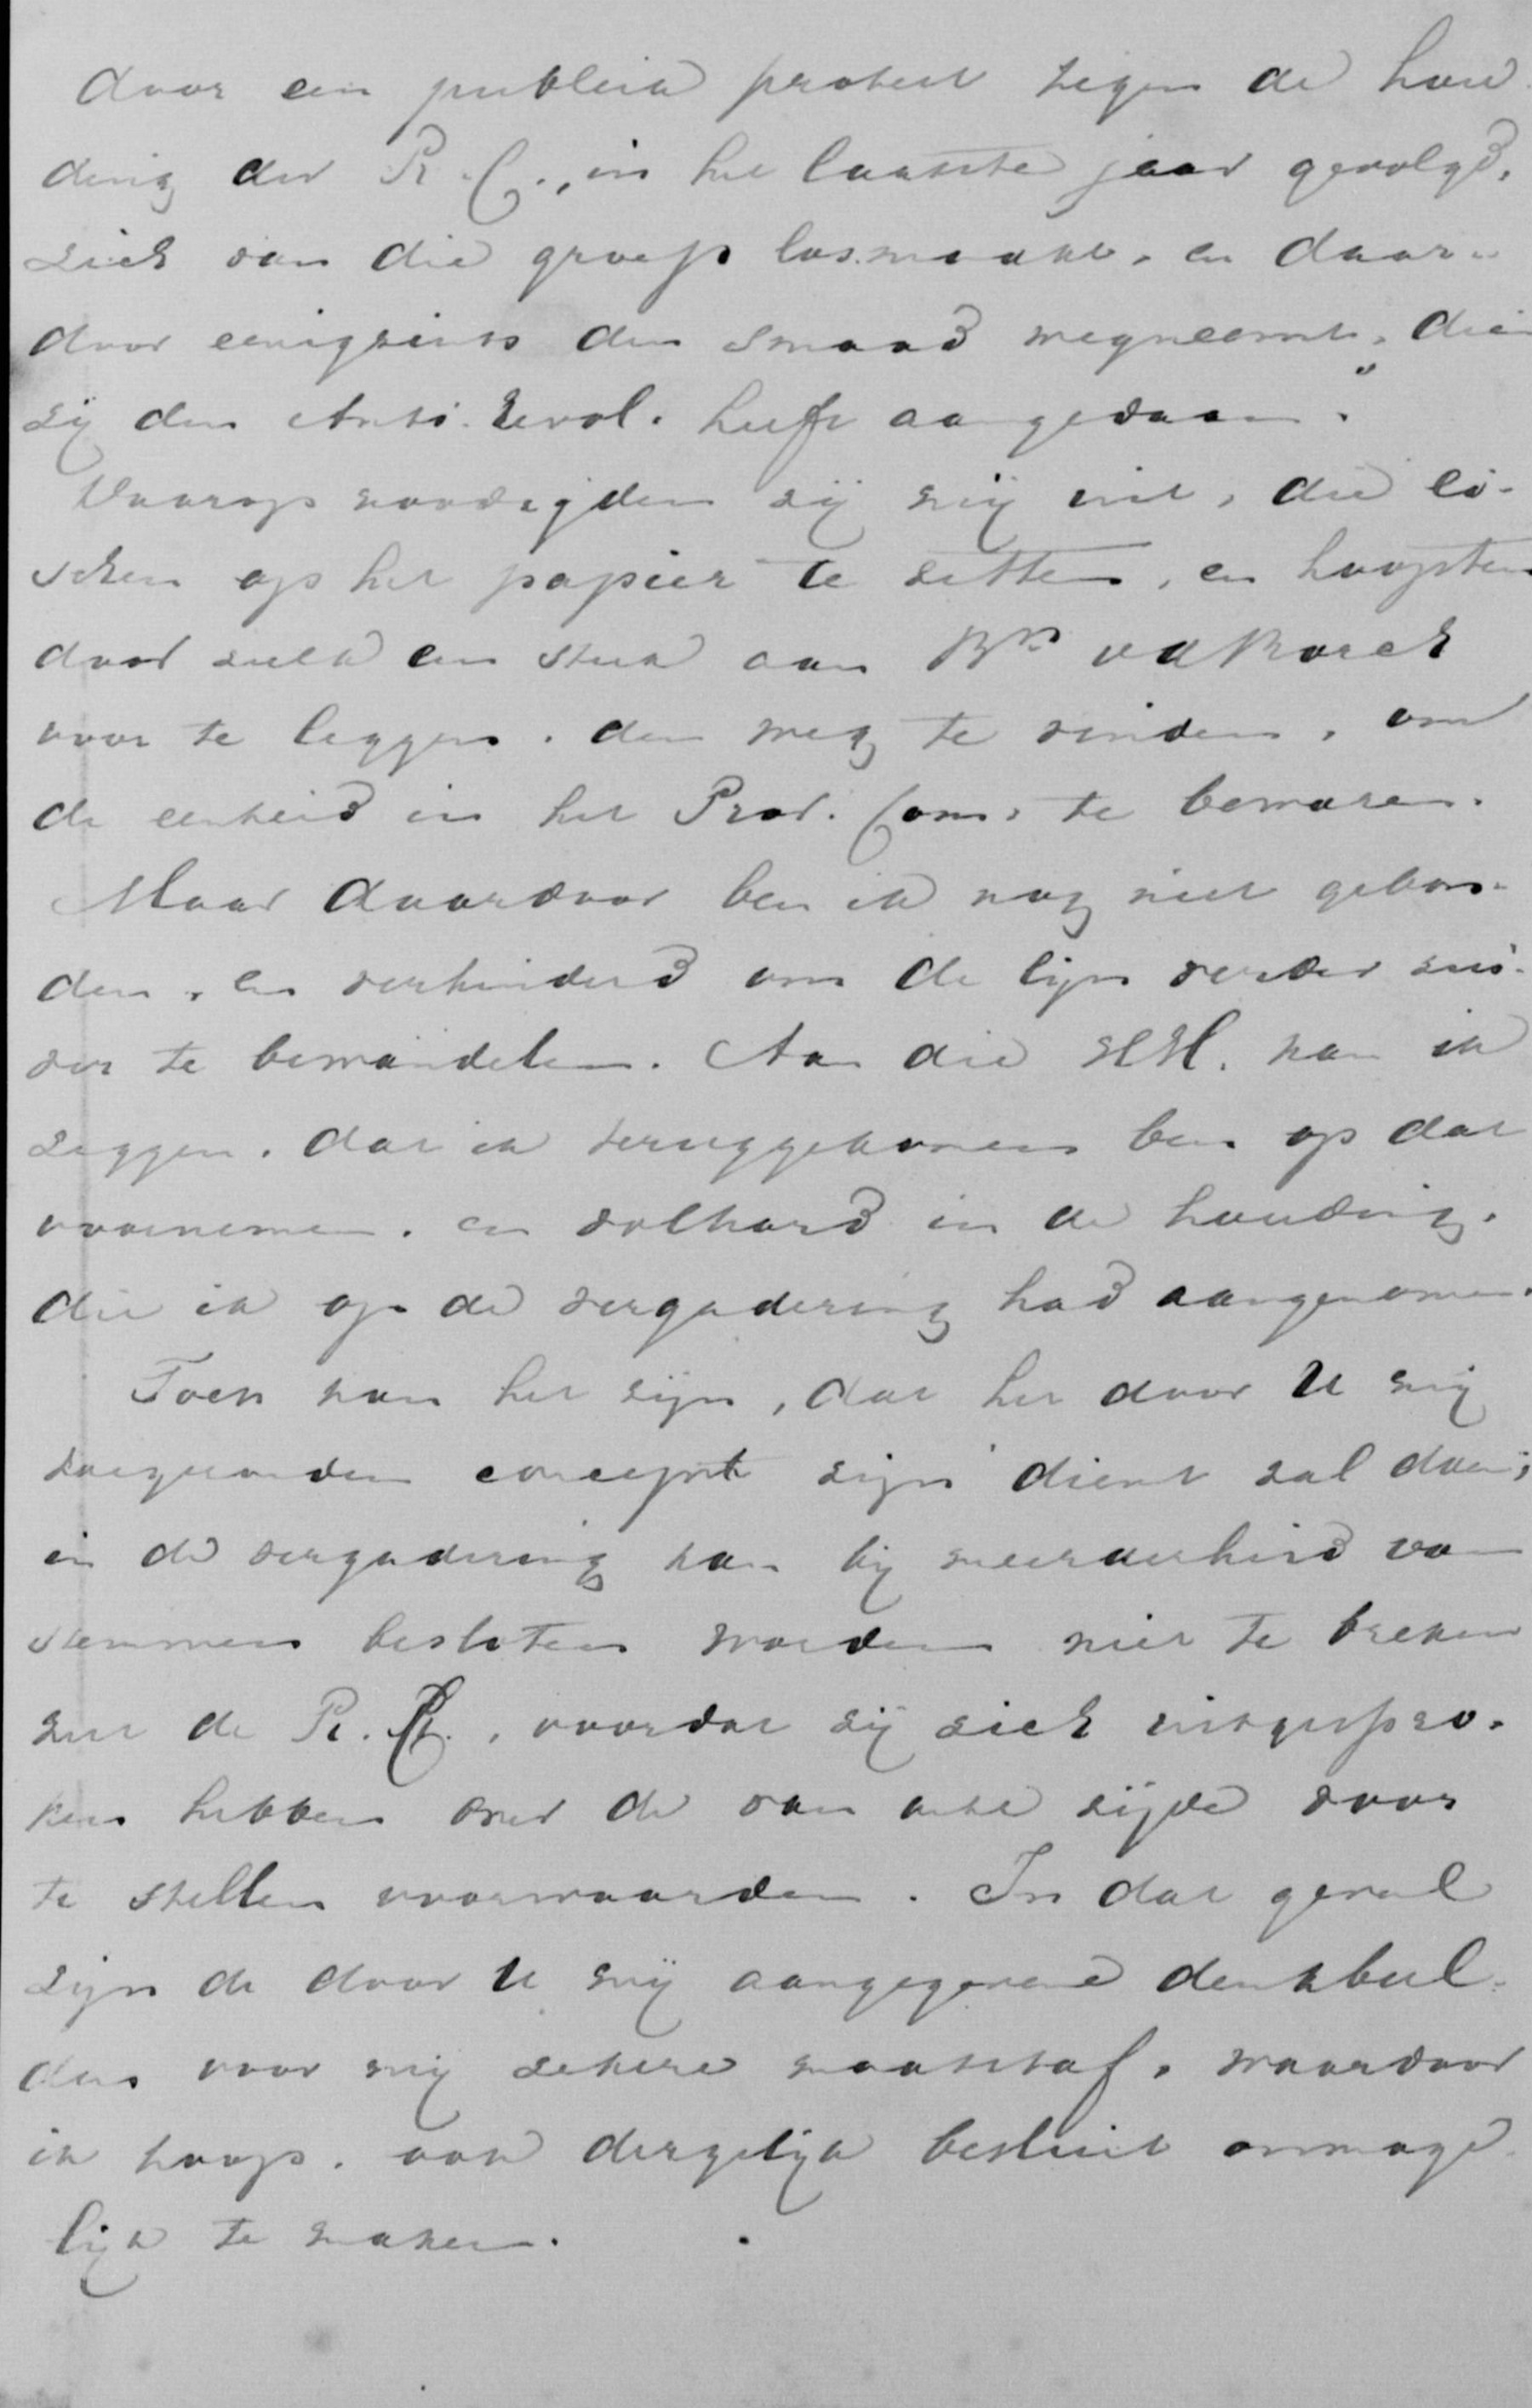 door een publiek protest tegen de hou¬
ding der R. C., in het laatste jaar gevolgd,
zich van die groep losmaakt, en daar¬
door eenigzints den smaad wegneemt, die
zij den Anti. Revol. heeft aangedaan."
Waarop noodigden zij mij uit, die ei¬
schen op het papier te zetten, en hoopten
door zulk een stuk aan Bn vdBorch
voor te leggen, den weg te vinden, om
de eenheid in het Prov. Com. te bewaren.
Maar daardoor ben ik nog niet gebon¬
den, en verhinderd om de lijn verder zui¬
ver te bewandelen. Aan die HH. kan ik
zeggen, dat ik teruggekomen ben op dat
voornemen, en volhard in de houding,
die ik op de vergadering had aangenomen.
Toch kan het zijn, dat het door U mij
toegezonden concept zijn dienst zal doen;
in de vergadering kan bij meerderheid van
stemmen besloten worden niet te breken
met de R. C., voordat zij zich uitgespro¬
ken hebben over de van onze zijde voor
te stellen voorwaarden. In dat geval
zijn de door U mij aangegevene denkbeel¬
den voor mij zekere maatstaf, waardoor
ik hoop, ook dergelijk besluit onmoge¬
lijk te maken.